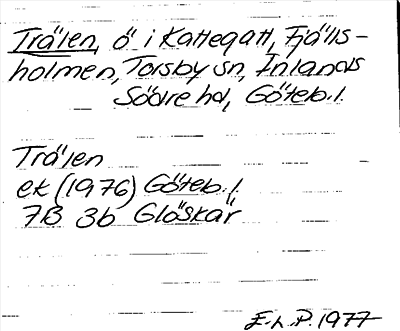 Trälen, ö i Kattegatt, Fjälls-
holmen, Torsby sn, Inlands
Södre hd, Göteb. l.
Trälen
ek (1976) Göteb. l.
7B 3b Glöskär
E.L.P. 1977